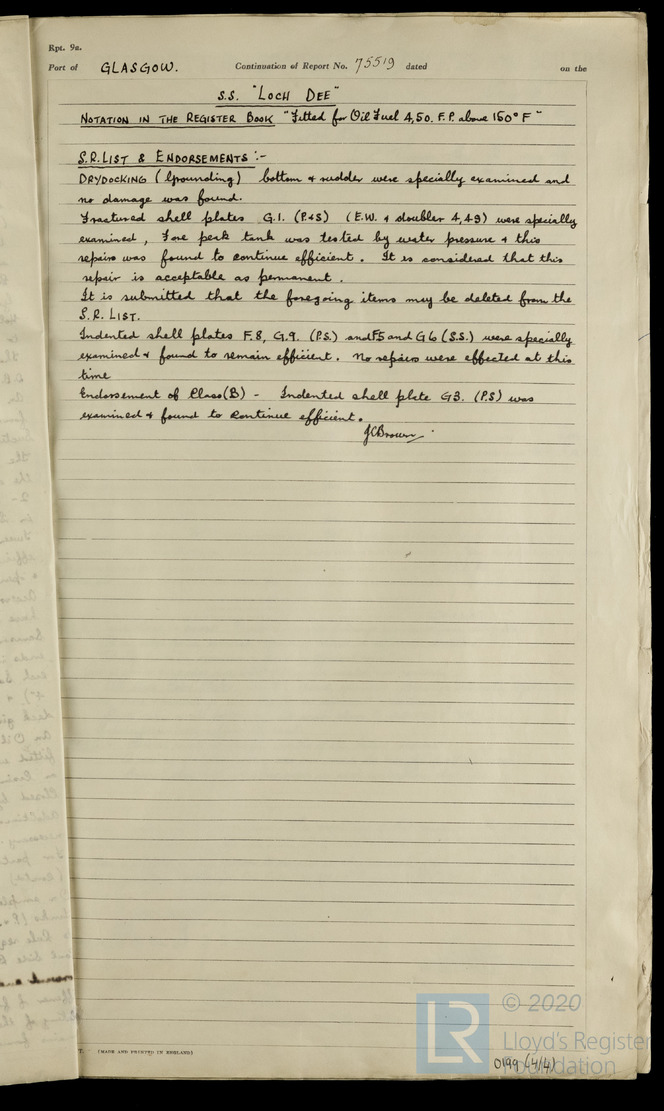 Rpt. 9a.
Port of GLASGOW. Continuation of Report No. 75519 dated on the
S.S. "LOCH DEE"
NOTATION IN THE REGISTER BOOK "Fitted for Oil Fuel 4,50. F.P. above 150° F"
S.R. LIST & ENDORSEMENTS :-
DRYDOCKING (Grounding) bottom & rudder were specially examined and
no damage was found.
Fractured shell plates G.1. (P&S) (E.W. & doubler 4,49) were specially
examined, Fore peak tank was tested by water pressure & this
repairs was found to continue efficient. It is considered that this
repair is acceptable as permanent.
It is submitted that the foregoing items may be deleted from the
S.R. LIST.
Indented shell plates F.8, G.9. (P.S.) and F5 and G6 (S.S.) were specially
examined & found to remain efficient. No repairs were effected at this
time
Endorsement of Class (B) - Indented shell plate G3. (P.S) was
examined & found to continue efficient.
JCBrown
T. (MADE AND PRINTED IN ENGLAND)
LR © 2020
Lloyd's Register
Foundation
0199 (4/4)